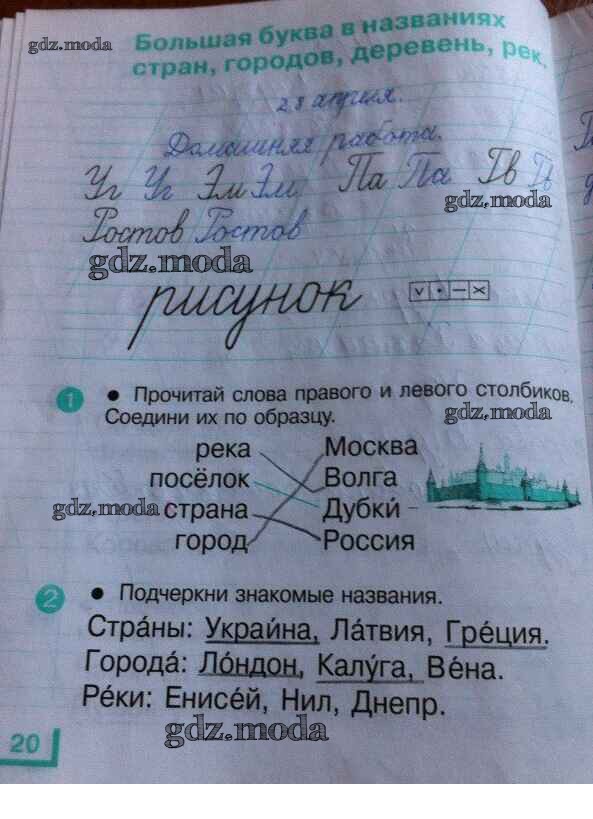 Большая буква в названиях
стран, городов, деревень, рек.
gdz.moda
28 апреля.
Домашняя работа.
Уг Уг Эм Эм Па Па Тв Тв
gdz.moda
Ростов Ростов
gdz.moda
рисунок
1 • Прочитай слова правого и левого столбиков.
Соедини их по образцу.
gdz.moda
река Москва
посёлок Волга
gdz.moda страна Дубки́
город Россия
2 • Подчеркни знакомые названия.
Стра́ны: Украи́на, Ла́твия, Гре́ция.
Города́: Ло́ндон, Калу́га, Ве́на.
Ре́ки: Енисе́й, Нил, Днепр.
gdz.moda
20